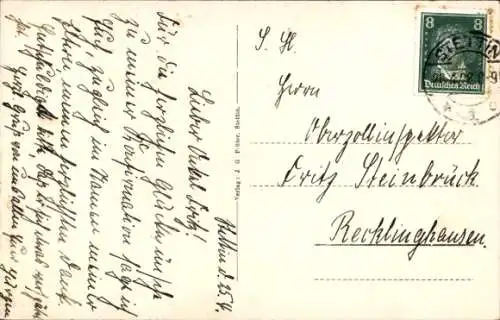 Stettin d. 25.4.
Lieber Onkel Fritz!
Für die herzlichen Glückwünsche
zu meiner Konfirmation sage ich
Euch, zugleich im Namen meiner
Eltern, meinen herzlichsten Dank.
Entschuldigt bitte, daß ich etwas
hat. Gruß von
Verlag: J. G. Stettin.
S. H.
Herrn
Oberzollinspektor
Fritz Steinbrück
Recklinghausen.
8 8
Deutsches Reich
STETTIN